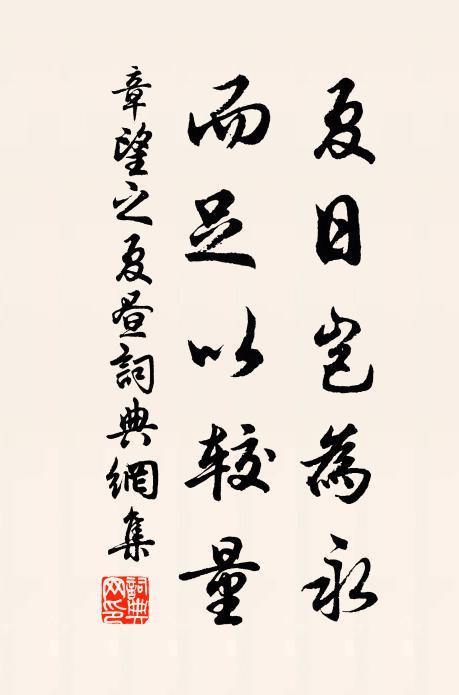 夏日豈為永
而足以較量
章望之夏晝詞典網集
詞典
网印